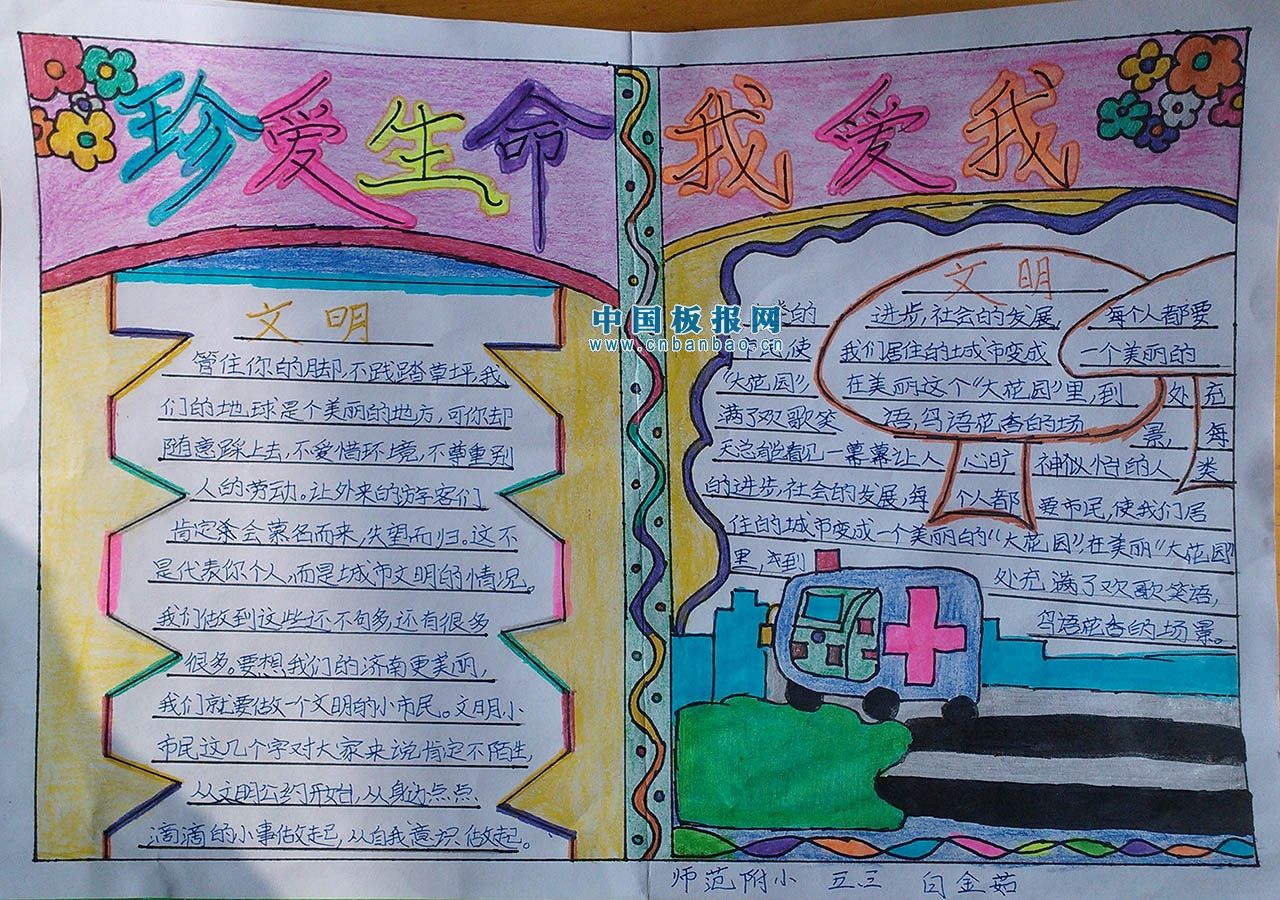 珍爱生命
我爱我
文明
管住你的脚,不践踏草坪,我
们的地球是个美丽的地方,可你却
随意踩上去,不爱惜环境,不尊重别
人的劳动。让外来的游客们
肯定会慕名而来,失望而归。这不
是代表你个人,而是城市文明的情况。
我们做到这些还不句多,还有很多
很多。要想我们的济南更美丽,
我们就要做一个文明的小市民。文明小
市民这几个字对大家来说肯定不陌生,
从文明公约开始,从身边点点
滴滴的小事做起,从自我意识做起。
文明
类的 进步,社会的发展, 每个人都要
民使 我们居住的城市变成 一个美丽的
“大花园”, 在美丽这个“大花园”里,到 处充
满了欢歌笑 语,鸟语花香的场 景, 每
天总能看见一幕幕让人 心旷 神怡的人 类
的进步,社会的发展,每 个人都 要市民,使我们居
住的城市变成一个美丽的“大花园”在美丽“大花园”
里,到 处充满了欢歌笑语,
鸟语花香的场景。
中国板报网
www.cnbanbao.cn
师范附小 五三 白金茹